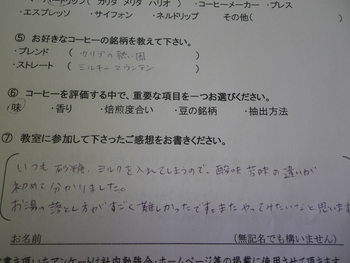 ・ペーパードリップ（ カリタ メリタ ハリオ ） ・コーヒーメーカー ・プレス
・エスプレッソ ・サイフォン ・ネルドリップ その他（
⑤ お好きなコーヒーの銘柄を教えて下さい。
・ブレンド （ カリブの熱い風 ）
・ストレート （ ミルキーマウンテン ）
⑥ コーヒーを評価する中で、重要な項目を一つお選びください。
・味 ・香り ・焙煎度合い ・豆の銘柄 ・抽出方法
⑦ 教室に参加して下さったご感想をお書きください。
いつも 砂糖、ミルクを入れてしまうので、酸味 苦味の違いが
初めて分かりました。
お湯の落とし方がすごく難しかったです。またやってみたいなと思いま
お名前 （無記名でも構いません）
頂いたアンケートは社内勉強会・ホームページ等の掲載に使用させて頂きます